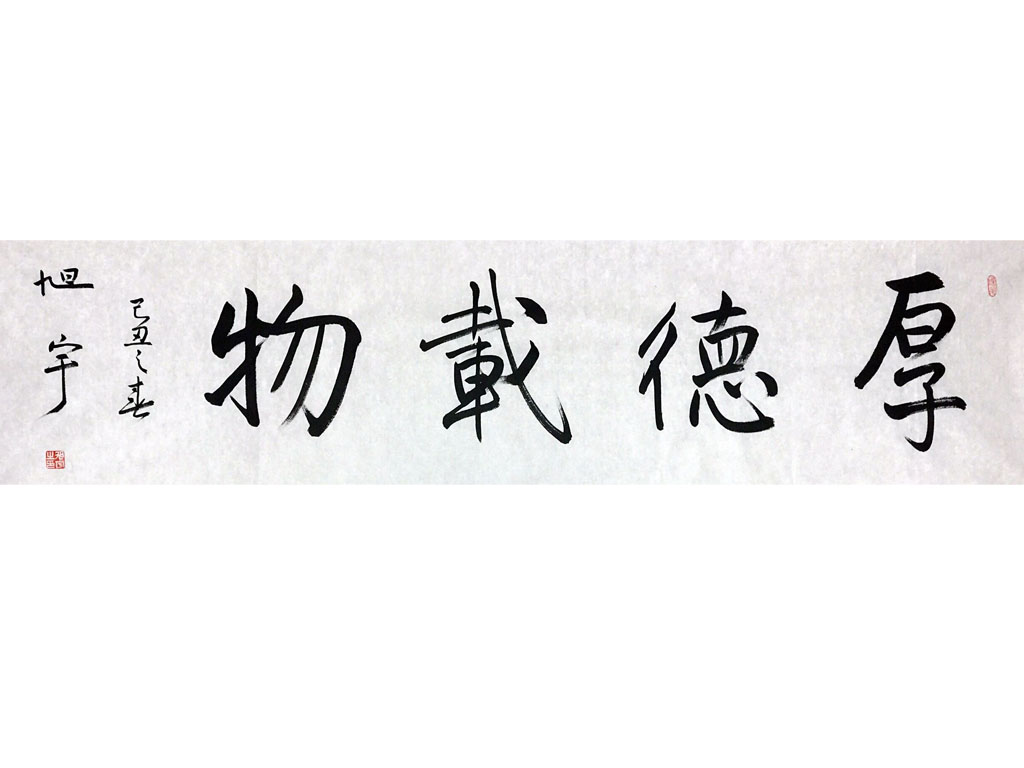 厚德載物
己丑之春
旭宇